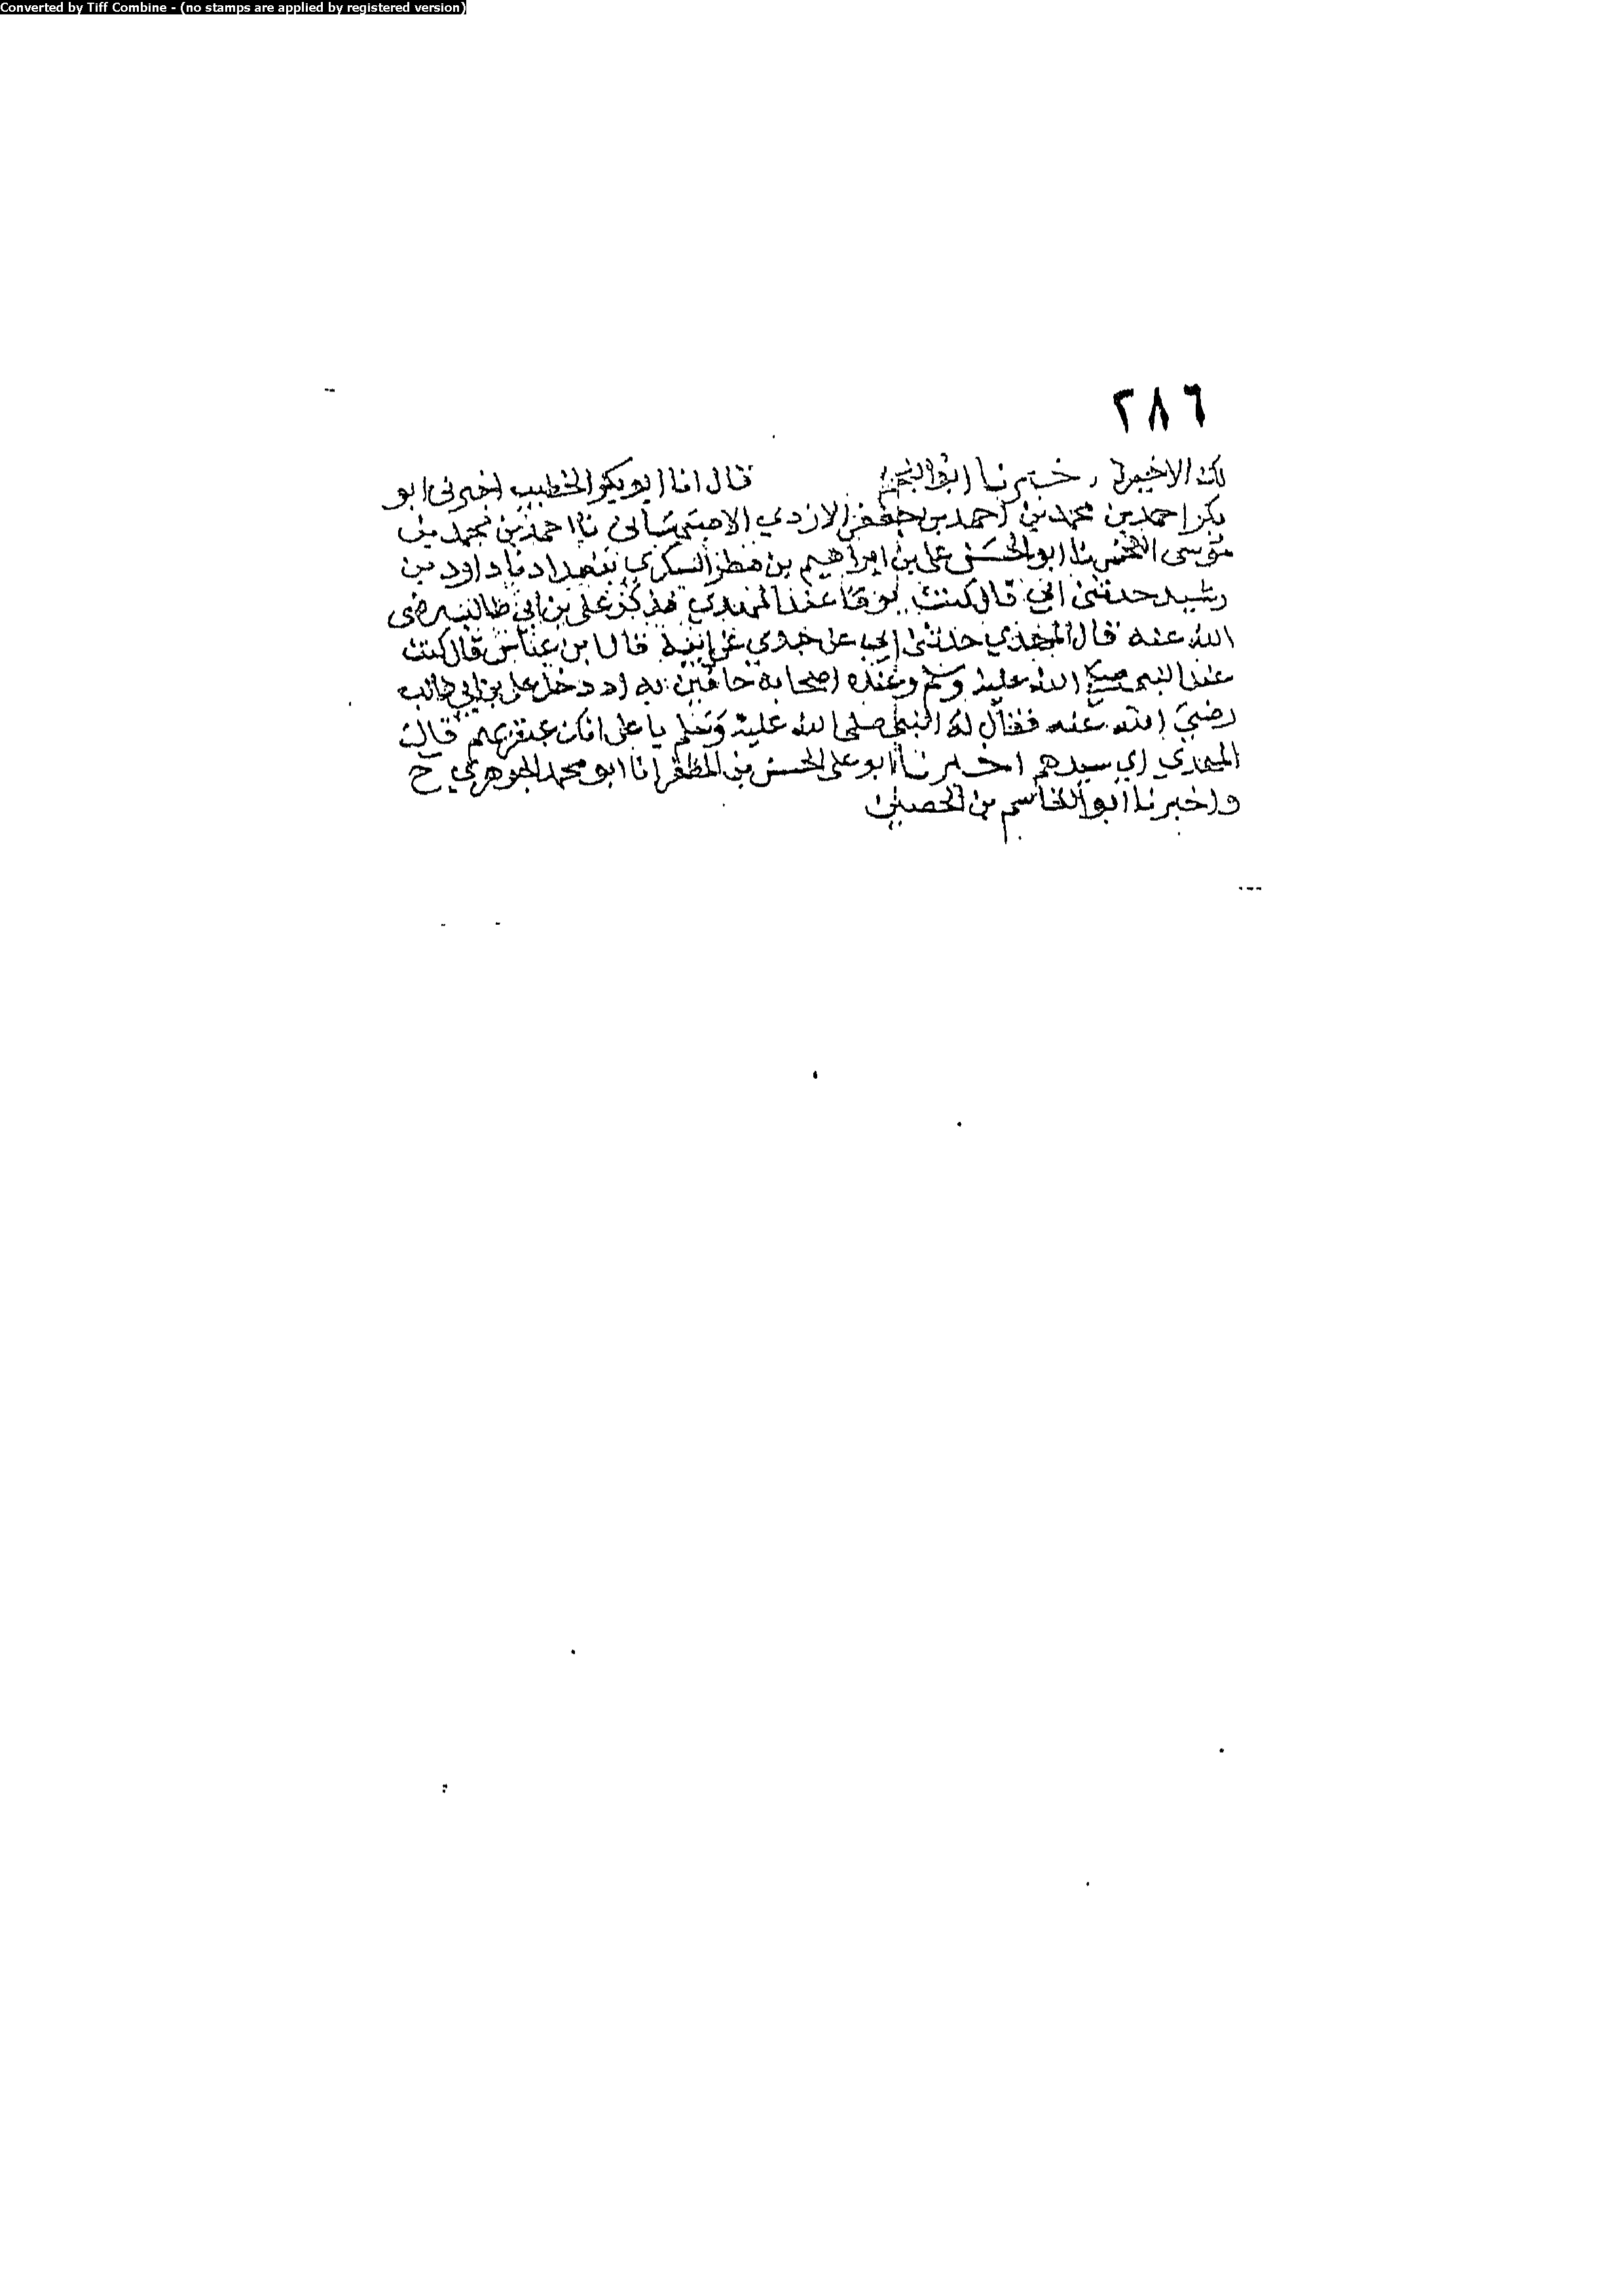 Converted by Tiff Combine - (no stamps are applied by registered version)
٢٨٦
لك الاخير اخبرنا ابو النجم قال انا ابو بكر الخطيب اخبرني ابو
بكر احمد بن محمد بن احمد بن جعفر الازدي نا احمد بن محمد بن
موسى نا ابو الحسن علي بن ابراهيم بن مطر السكري ببغداد نا داود بن
رشيد حدثني ابي قال كنت يوما عند المهدي فذكر علي بن ابي طالب رضى
الله عنه قال المهدي حدثني ابي عن جدي عن ابيه قال ابن عباس قال كنت
عند النبي صلى الله عليه وسلم وعنده اصحابه حافين به اذ دخل علي بن ابي طالب
رضي الله عنه فقال له النبي صلى الله عليه وسلم يا على انك عبقريهم قال
المهدي اي سيدهم اخبرنا ابو على الحسن بن المظفر انا ابو محمد الجوهري ح
واخبرنا ابو القاسم بن الحصين